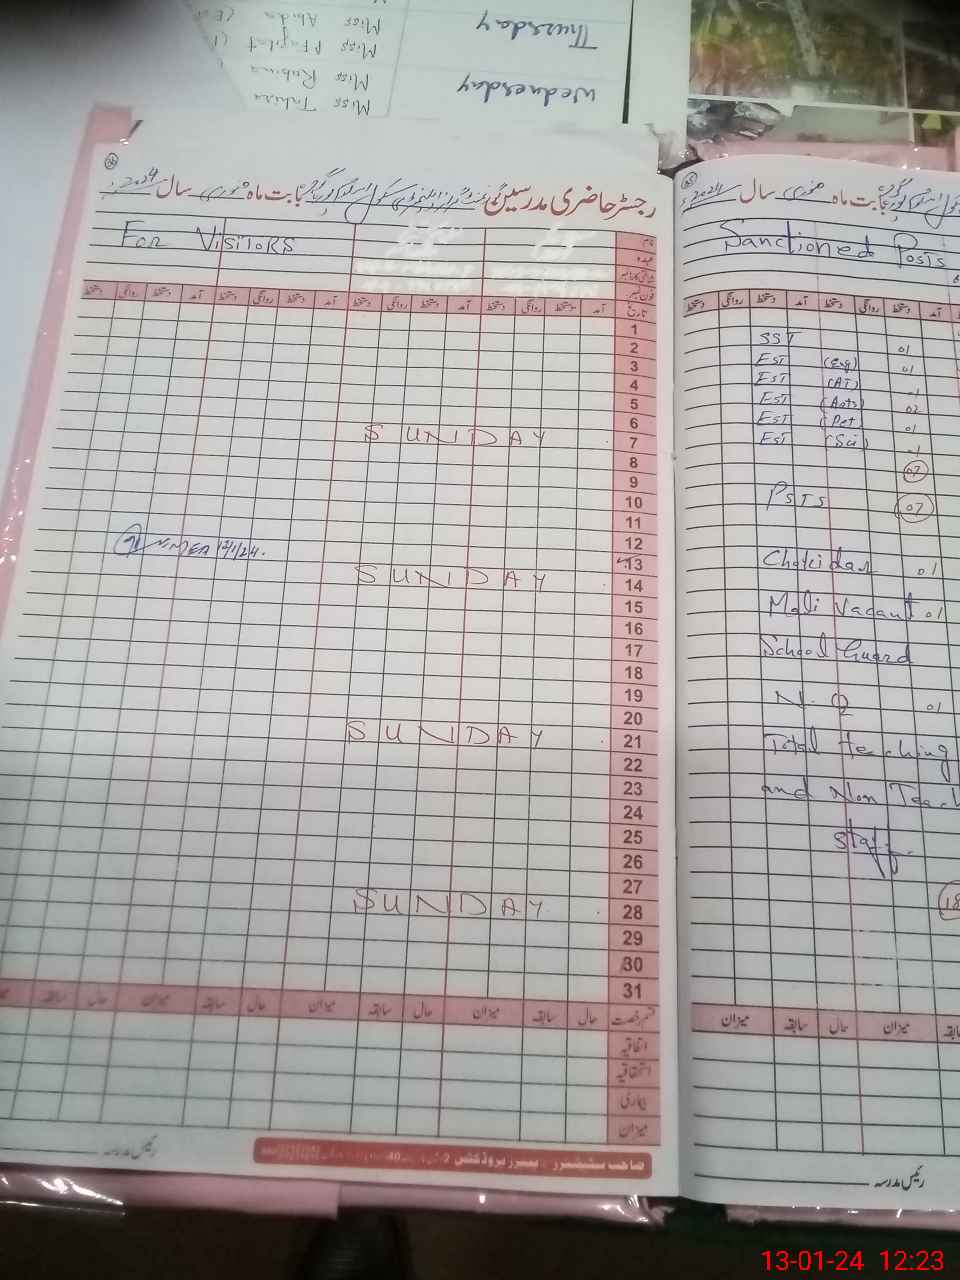 Thursday
Wednesday
Miss Abida
Miss
Miss Rubina
Miss Tahira
رجسٹر حاضری مدرسین
بابت ماہ جنوری سال 2024
For VISITORS
نام
عہدہ
تاریخ آمد دستخط روانگی دستخط آمد دستخط روانگی دستخط آمد دستخط روانگی دستخط آمد دستخط روانگی دستخط
1
2
3
4
5
6
7 SUNDAY
8
9
10
11
12
13 MEA 12/1/24.
14 SUNDAY
15
16
17
18
19
20
21 SUNDAY
22
23
24
25
26
27
28 SUNDAY
29
30
31
قسم رخصت حال سابقہ میزان حال سابقہ میزان حال سابقہ میزان حال سابقہ
اتفاقیہ
استحقاقیہ
بیماری
میزان
رئیس مدرسہ
بابت ماہ جنوری سال 2024
Sanctioned Posts
آمد دستخط روانگی دستخط آمد دستخط روانگی دستخط
SST 01
EST (Eng) 01
EST (AT) 01
EST (Arts) 02
EST (Pet) 01
EST (Sci) 01
07
PSTS 07
Chokidar 01
Mali Vacant 01
School Guard
N.Q 01
Total teaching
and Non Teach
staff.
18
سابقہ میزان حال سابقہ میزان
رئیس مدرسہ
13-01-24 12:23